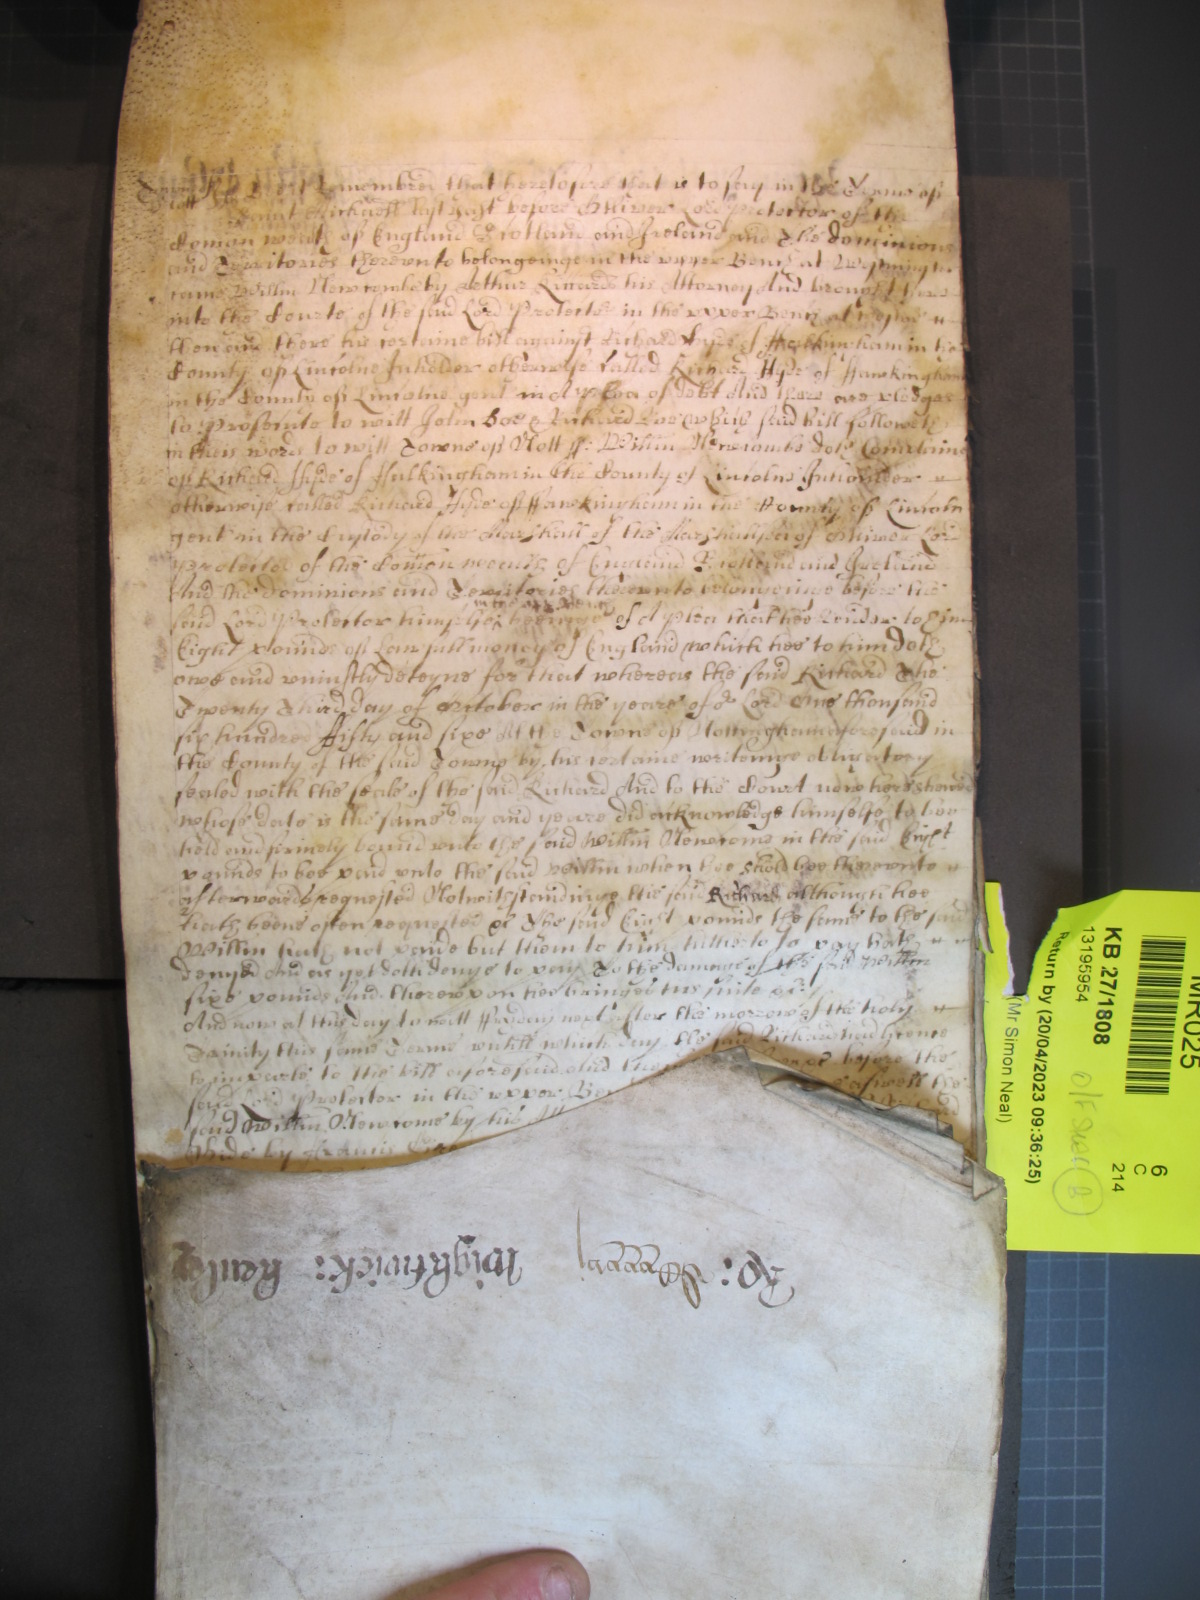 Bee it Remembred that heretofore that is to say in the Terme of
Saint Michaell last past before Oliver Lord Protector of the
Comon wealth of England Scotland and Ireland and the dominions
and Territories thereunto belongeinge in the upper Bench at Westminster
came Willm Newcombe by Arthur his Attorney And brought here
into the Courte of the said Lord Protector in the upper Bench at westm
then and there his certaine bill against Richard Hyde of Hawkingham in the
County of Lincolne Inholder otherwise called Richard Hyde of Hawkingham
in the County of Lincolne gent in a plea of debt And there are pledges
to prosecute to witt John Doe & Richard Roe which said bill followeth
in theis words to witt Towne of Nott ss: Willm Newcombe doth Complaine
of Richard Hyde of Halkingham in the County of Lincolne Inhoulder
otherwise called Richard Hyde of Hawkingham in the County of Lincoln
gent in the Custody of the Marshall of the Marshallsea of Oliver Lord
protector of the Comon wealth of England Scotland and Ireland
And the dominions and Territories thereunto belongeinge before the
in the upper Bench
said Lord Protector himselfe beeinge of a Plea that hee render to him
Eight pounds of Lawfull money of England which hee to him doth
owe and uniustly deteyne for that whereas the said Richard the
Twenty Third day of October in the yeare of or Lord One thousand
six hundred fifty and sixe att the Towne of Nottingham aforesaid in
the County of the said Towne by his certaine writeinge obligatory
sealed with the seale of the said Richard And to the Court now here shewed
whose date is the same day and yeare did acknowledge himselfe to bee
held and firmely bound unto the said Willm Newcome in the said Eight
pounds to bee paid unto the said Willm when hee shold bee thereunto
afterwards requested Notwithstandinge the said Richard although hee
hath beene often requested &c The said Eight pounds the same to the said
Willm hath not paide but them to him hitherto to pay hath
denyed And as yet doth denye to pay To the damage of the said Willm
sixe pounds And thereupon hee bringes his suite &c
And now at this day to witt Fryday next after the morrow of the holy
Trinity this same Terme untill which day the said Richard had leave
to imparle to the bill aforesaid and before the
said Lord Protector in the upper aswell the
said Willm Newcome by his
Hyde by Francis
Ro: Wightwick: Henley
KB 27/1808
13195954
Return by (20/04/2023 09:36:25)
(Mr Simon Neal)
MR025
6
C
214